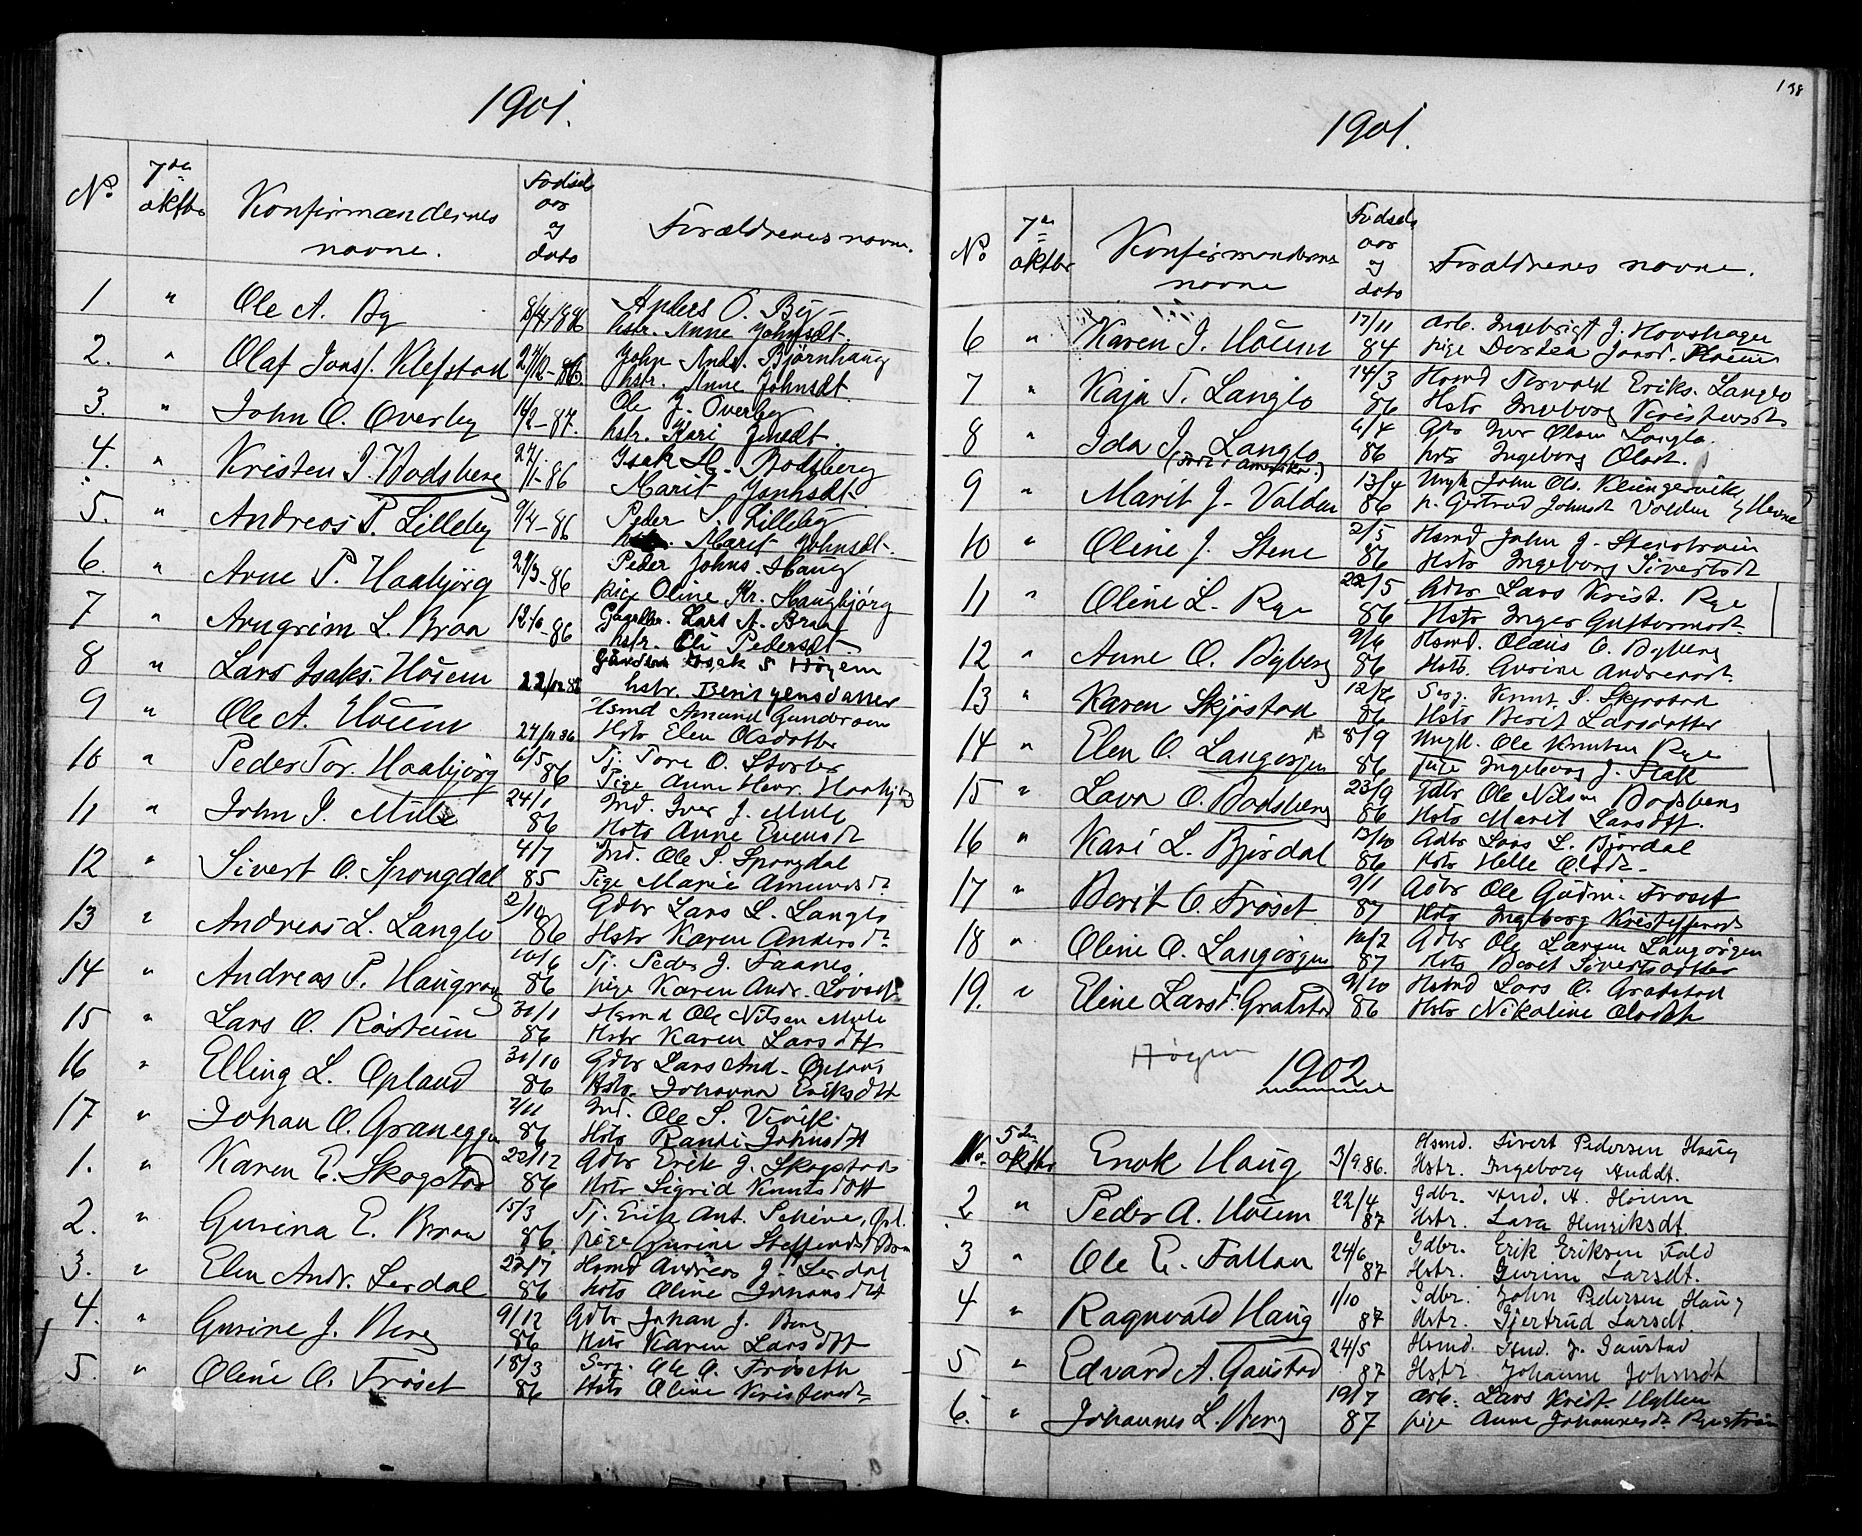 1901.
No
7de oktbr
Konfirmændernes navne.
Fødsels aar og dato
Forældrenes navne.
1 " Ole A. By 8/4-86 Anders O. By
hstr. Anne Johnsdt.
2. " Olaf Jonsf. Klefstad 24/12-86. John And. Bjørnhaug
hstr. Anne Johnsdt.
3. " John O. Overby 14/2-87. Ole J. Overby
hstr. Kari Jensdt.
4. " Kristen I. Bodsberg 24/11-86 Isak H. Bodsberg
Marit Jonhsdt.
5. " Andreas P. Lilleby 9/4-86 Peder S. Lilleby
Marit Johnsdt.
6. " Arne P. Haabjørg 29/3-86 Peder Johns. Haug
pige Oline Kr. Haugbjørg
7 " Arngrim L. Braa 12/10-86 Lars A. Braa
hstr. Eli Pedersdt
8 " Lars Isaks. Höiem 22/12 86 Isak S Høyem
hstr. Berit Jensdatter
9 " Ole A. Höiem 24/11 86 Hsmd Amund Gundersen
Hstr Elen Olsdatter
10 " Peder Tor. Haabjørg 6/5 86 Tj. Tore O. Storler
Pige Anne Henr. Haabjørg
11 " John I. Mule 24/1 86 Ind. Iver J. Mule
Hstr Anne Evensdt
12 " Sivert O. Spongdal 4/7 85 Ind. Ole S. Spongdal
Pige Marie Amundsdt
13 " Andreas L. Langlo 2/10 86 Gdbr Lars L. Langlo
Hstr Karen Andersdt.
14 " Andreas P. Haugrøn 10/6 86 Tj. Peder J. Faanes
pige Karen Andr. Lovset
15 " Lars O. Röstum 30/1 86 Hsmd Ole Nilsen Mule
Hstr Karen Larsdtt
16 " Elling L. Opland 30/10 86 Gdbr Lars And. Opland
Hstr Johanna Eriksdtt
17 " Johan O. Graneggen 7/11 86 Ind. Ole S. Vevik
Hstr Randi Johnsdtt
1. " Karen E. Skogstad 22/12 86 Gdbr Erik J. Skogstad
Hstr Sigrid Knutsdtt
2. " Gurina E. Braa 15/3 86 Tj. Erik Ant.
pige Gurine Steffensdt Braa
3. " Elen Andr. Lerdal 22/7 86 Hsmd Andreas J. Lerdal
hstr Oline Johansdtt
4. " Gurine J. Berg 9/12 86 Gdbr Johan J. Berg
Hstr Karen Larsdtt
5. " Oline O. Fröset 18/3 86 Serg. Ole O. Fröseth
Hstr Oline Kristensdt
138
1901.
No
7de oktbr
Konfirmandernes navne
Fødsels aar og dato
Forældrenes navne.
6 " Karen I. Höiem 17/11 84 Arb. Ingebrigt J. Hovshagen
pige Dortea Jonsd. Höiem
7 " Kaja T. Langlo 14/3 86 Hsmd Torvald Eriks. Langlo
Hstr Ingeborg Kristensdt
8 " Ida I. Langlo 6/4 86 Gbr Iver Olsen Langlo.
hstr Ingeborg Olsdt.
(født i Amerika.)
9 " Marit J. Valden 13/4 86 Ungk John Ols. Klungervik,
p. Gjertrud Johnsdt Valden, Hevne
10 " Oline J. Stene 2/5 86 Hsmd John J. Stenstrøm
Hstr Ingeborg Sivertsdt
11 " Oline L. Rye 22/5 86 Gdbr Lars Krist. Rye
Hstr Inger Guttormsdt.
12 " Anne O. Byberg 9/6 86 Hsmd. Olaus O. Byberg
Hstr. Gurine Andersdt.
13 " Karen Skjöstad 12/6 86 Serg. Knut S. Skjøstad
Hstr Berit Larsdatter
14 " Elen O. Langørjen 8/9 86 Ungk. Ole Knutsen Rye
Pige Ingeborg J. Flak
15 " Lava O. Bodsberg 23/9 86 Gdbr Ole Nilsen Bodsberg
Hstr Marit Larsdtt.
16 " Kari L. Bjørdal 13/10 86 Gdbr Lars L. Björdal
Hstr Helle Olsdt.
17 " Berit O. Fröset 9/1 87 Gdbr Ole Gudm. Fröset
Hstr Ingeborg Kristoffersdt
18 " Oline O. Langörgen 10/2 87 Gdbr Ole Larsen Langörgen
Hstr Beret Sivertsdtter
19. " Eline Larsdt. Gratstad 9/10 86 Hsmd Lars O. Gratstad
Hstr Nikoline Olsdtt
Høgen
1902
No. 5te oktbr Enok Haug 3/9.86. Hsmd. Sivert Pedersen Haug
Hstr. Ingeborg Anddt.
2 " Peder A. Höiem 22/4 87 Gdbr. And. A. Höiem
Hstr. Lava Henriksdt
3 " Ole E. Fallan 24/6 87 Gdbr. Erik Eriksen Fald
Hstr. Gurine Larsdt.
4 " Ragnvald Haug 1/10 87 Gdbr. John Pedersen Haug
Hstr. Gjertrud Larsdt.
5 " Edvard A. Gaustad 24/5 87 Hsmd. And. J. Gaustad
Hstr. Johanne Johnsdt
6. " Johannes L. Berg 19/7 87 Arb. Lars Krist. Hyllen
pige Anne Johannesdt.